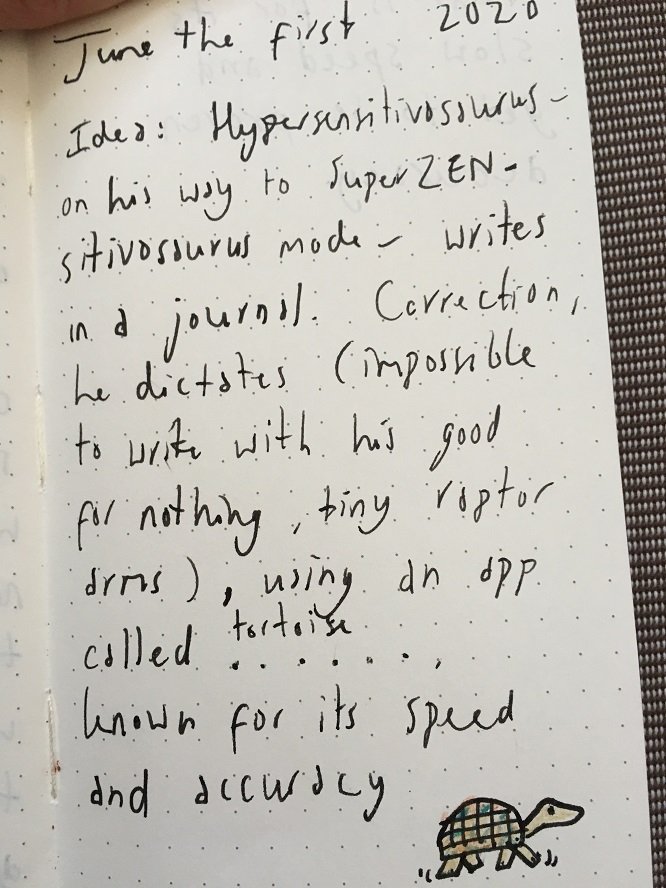 June the first 2020
Idea: Hypersensitivosaurus -
on his way to SuperZEN-
sitivosaurus mode - writes
in a journal. Correction,
he dictates (impossible
to write with his good
for nothing, tiny raptor
arms), using an app
called tortoise.......,
known for its speed
and accuracy